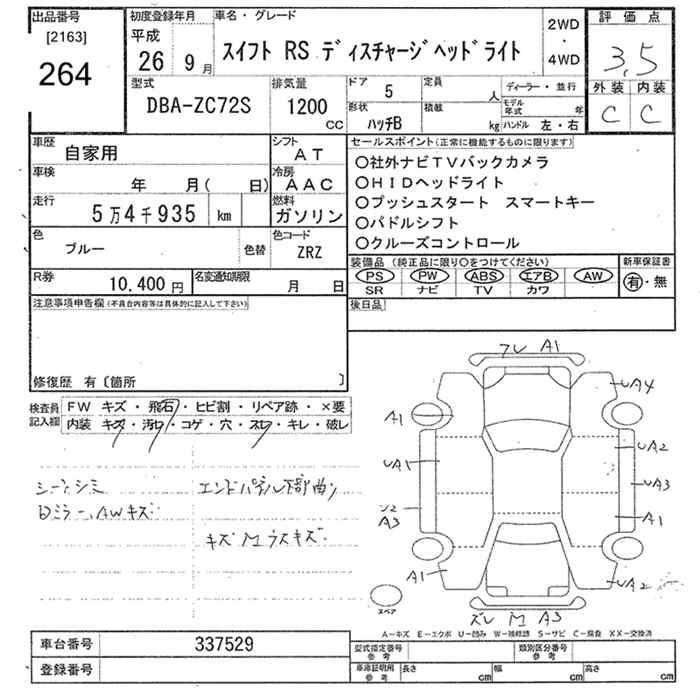 出品番号
[2163]
264
初度登録年月
平成
26 9月
車名・グレード
スイフト RS ディスチャージヘッドライト
2WD
・
4WD
評価点
3.5
外装 内装
C C
型式
DBA-ZC72S
排気量
1200
CC
ドア 5
定員 人
形状 ハッチB
積載 kg
ディーラー・並行
モデル年式 年
ハンドル 左・右
車歴
自家用
シフト
AT
車検
年 月( 日)
冷房
AAC
走行
5万4千935 km
燃料
ガソリン
色
ブルー
色替
色コード
ZRZ
R券
10,400円
名変通知期限
月 日
セールスポイント(正常に機能するものに限ります)
○社外ナビTVバックカメラ
○HIDヘッドライト
○プッシュスタート スマートキー
○パドルシフト
○クルーズコントロール
装備品 (純正品に限り○をつけてください)
PS PW ABS エアB AW
SR ナビ TV カワ
新車保証書
有・無
後日品
注意事項申告欄(不具合内容等は具体的に記入して下さい)
修復歴 有〔箇所 〕
検査員記入欄
FW キズ・飛石・ヒビ割・リペア跡・×要
内装 キズ・汚レ・コゲ・穴・スレ・キレ・破レ
シート、シミ
Dミラー、AWキズ
エンドパネル下部曲り
キズ M ラスキズ
フレ A1
UA4
A1
UA2
UA1
UA3
A3
A1
A1
UA2
スペア
ズレ M A3
A-キズ E-エクボ U-凹み W-補修跡 S-サビ C-腐食 XX-交換済
車台番号 337529
登録番号
型式指定番号 参考
類別区分番号 参考
車庫証明用 参考
長さ cm
幅 cm
高さ cm